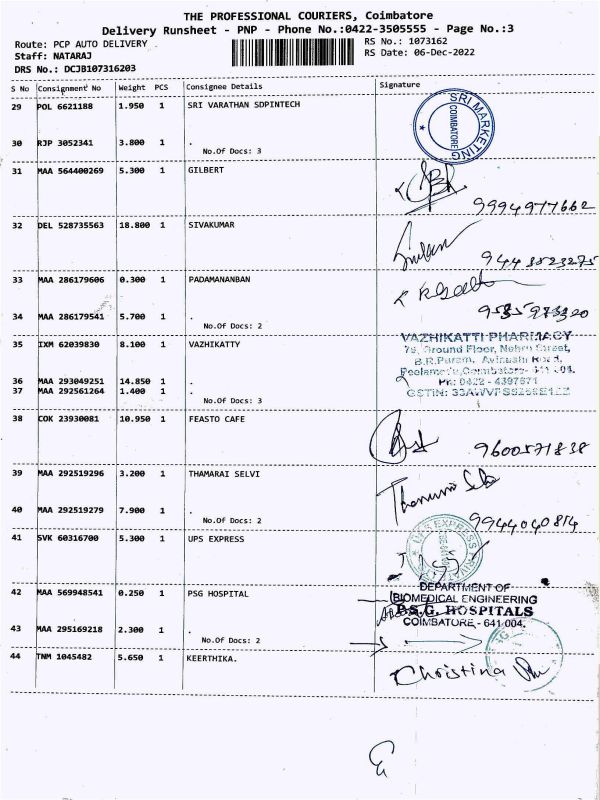 THE PROFESSIONAL COURIERS, Coimbatore
Delivery Runsheet - PNP - Phone No.:0422-3505555 - Page No.:3
Route: PCP AUTO DELIVERY
RS No.: 1073162
Staff: NATARAJ
RS Date: 06-Dec-2022
DRS No.: DCJB107316203
S No Consignment No Weight PCS Consignee Details Signature
29 POL 6621188 1.950 1 SRI VARATHAN SDPINTECH
SRI MARKETING
COIMBATORE
30 RJP 3052341 3.800 1 .
No.Of Docs: 3
31 MAA 564400269 5.300 1 GILBERT
9994977662
32 DEL 528735563 18.800 1 SIVAKUMAR
9443823275
33 MAA 286179606 0.300 1 PADAMANANBAN
34 MAA 286179541 5.700 1 .
No.Of Docs: 2
35 IXM 62039830 8.100 1 VAZHIKATTY
VAZHIKATTI PHARMACY
79, Ground Floor, Nehru Street,
B.R.Puram, Avinashi Road,
Peelamedu, Coimbatore- 641 004.
Ph: 0422 - 4397671
36 MAA 293049251 14.850 1 .
37 MAA 292561264 1.400 1 .
No.Of Docs: 3
38 COK 23930081 10.950 1 FEASTO CAFE
9600571838
39 MAA 292519296 3.200 1 THAMARAI SELVI
40 MAA 292519279 7.900 1 .
No.Of Docs: 2
9944040814
41 SVK 60316700 5.300 1 UPS EXPRESS
UPS EXPRESS
42 MAA 569948541 0.250 1 PSG HOSPITAL
DEPARTMENT OF
BIOMEDICAL ENGINEERING
P.S.G. HOSPITALS
COIMBATORE - 641 004.
43 MAA 295169218 2.300 1 .
No.Of Docs: 2
44 TNM 1045482 5.650 1 KEERTHIKA.
Christina